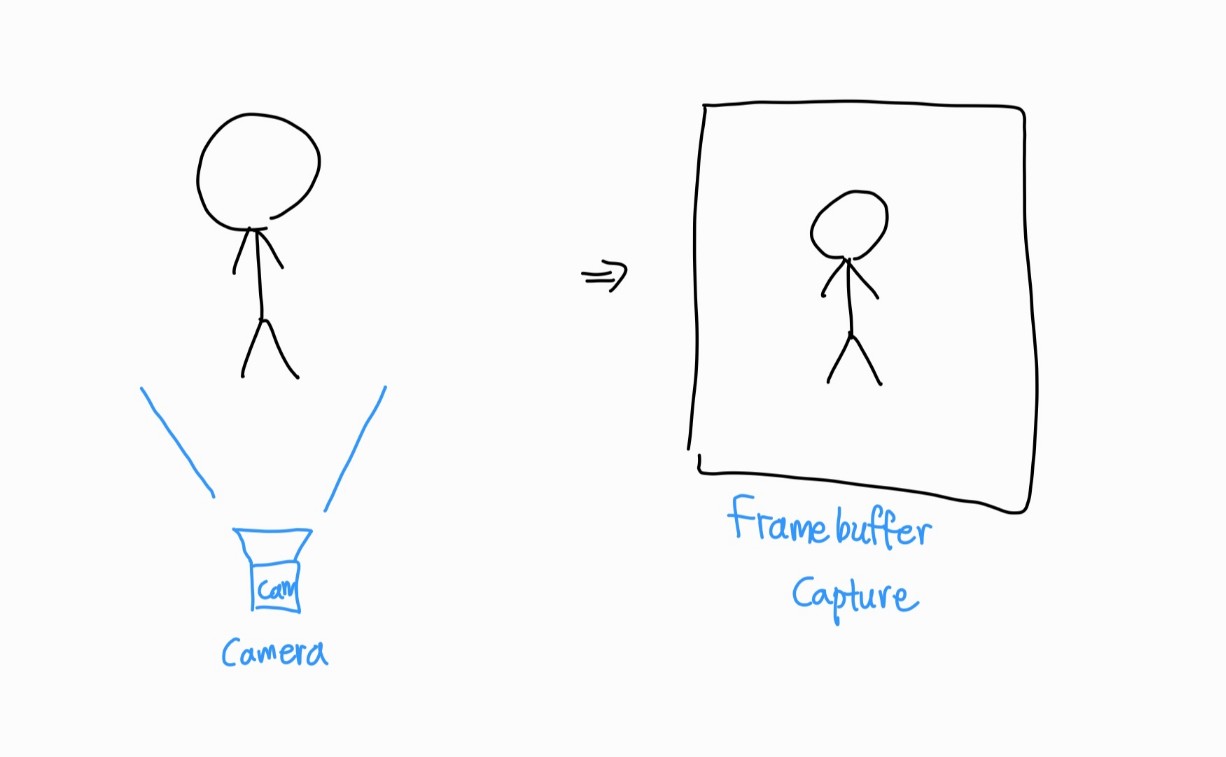 Cam
Camera
Framebuffer
Capture